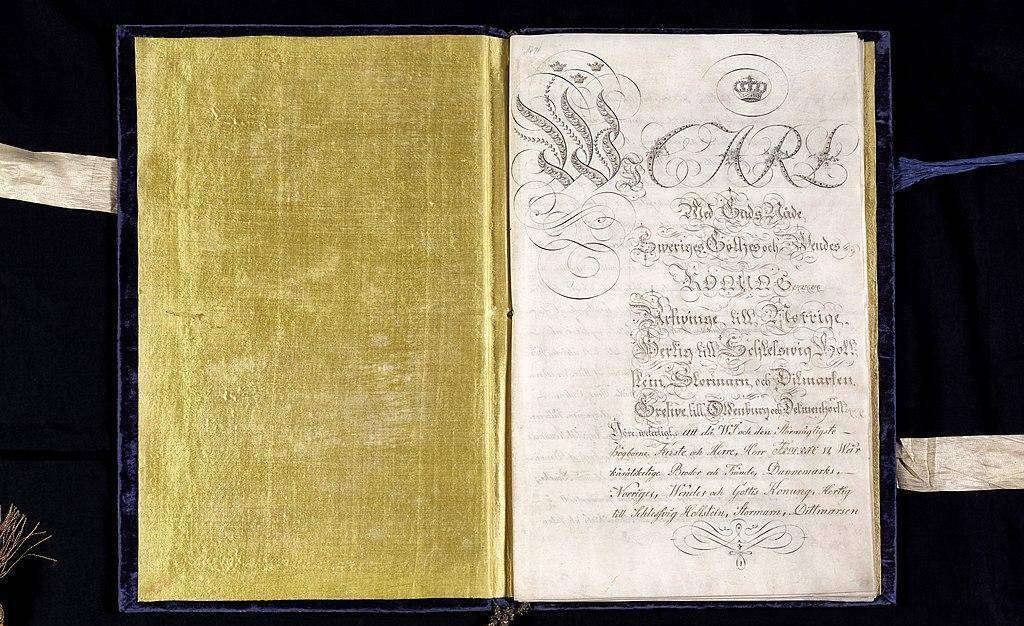 Wi CARL
Med Guds Nåde
Sweriges Göthes och Wendes
Konung
Arfwinge till Norrige,
Hertig till Schleswig Holl
stein, Stormarn, och Ditmarken,
Grefwe till Oldenburg och Delmenhorst
Göre weterligt, att då Wi och den Stormägtigste
högborne Furste och Herre, Herr Fredric VI, Wår
käräl­skelige Broder och Frände, Dannemarks,
Norriges, Wendes och Göttes Konung, Hertig
till Schlesswig Hollstein, Stormarn, Dittmarsen